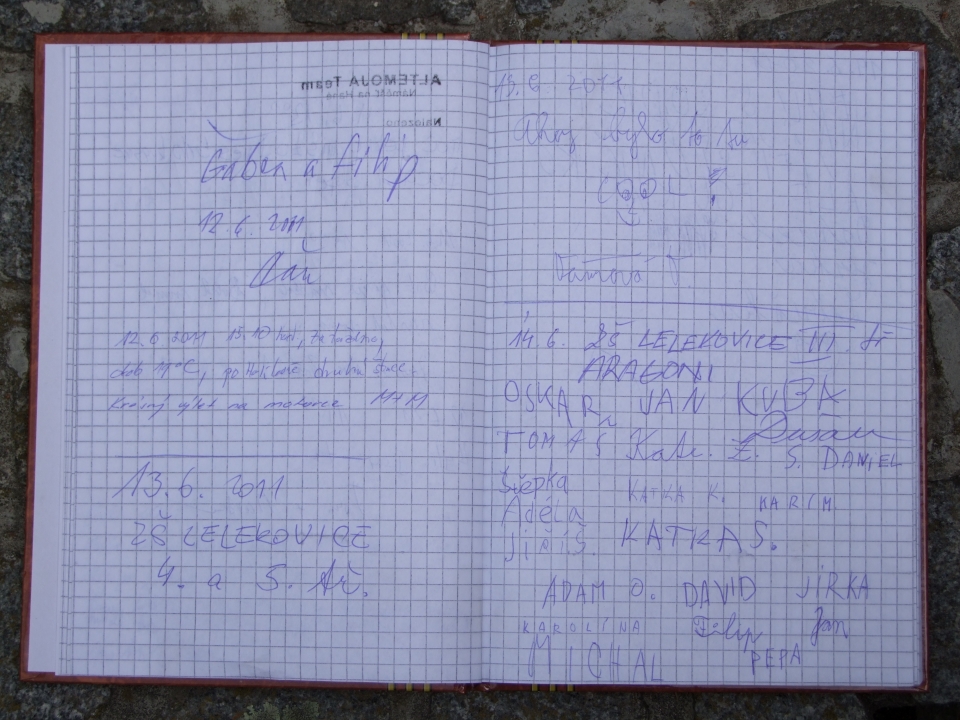 ALTEMOJA Team
a Filip
12.6. 2011
12.6 2011 15.10 hod, zataženo,
druhá
výlet na motorce M+M
13.6. 2011
ZŠ LELEKOVICE
4. a 5. tř.
13.6 2011
Ahoj bylo to tu
COOL
14.6. ZŠ LELEKOVICE III. tř
ARAGONI
OSKAR JAN KUBA
Dušan
TOMAS Kate. Z. S. DANIEL
Štěpka KATKA K. KARIM
Adéla
Jiří S. KATKA S.
ADAM O. DAVID JIRKA
KAROLÍNA Filip Jan
MICHAL PEPA